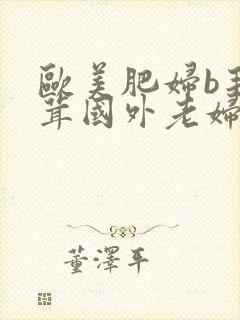 歐美肥婦b毛
茸國外老婦
董澤平